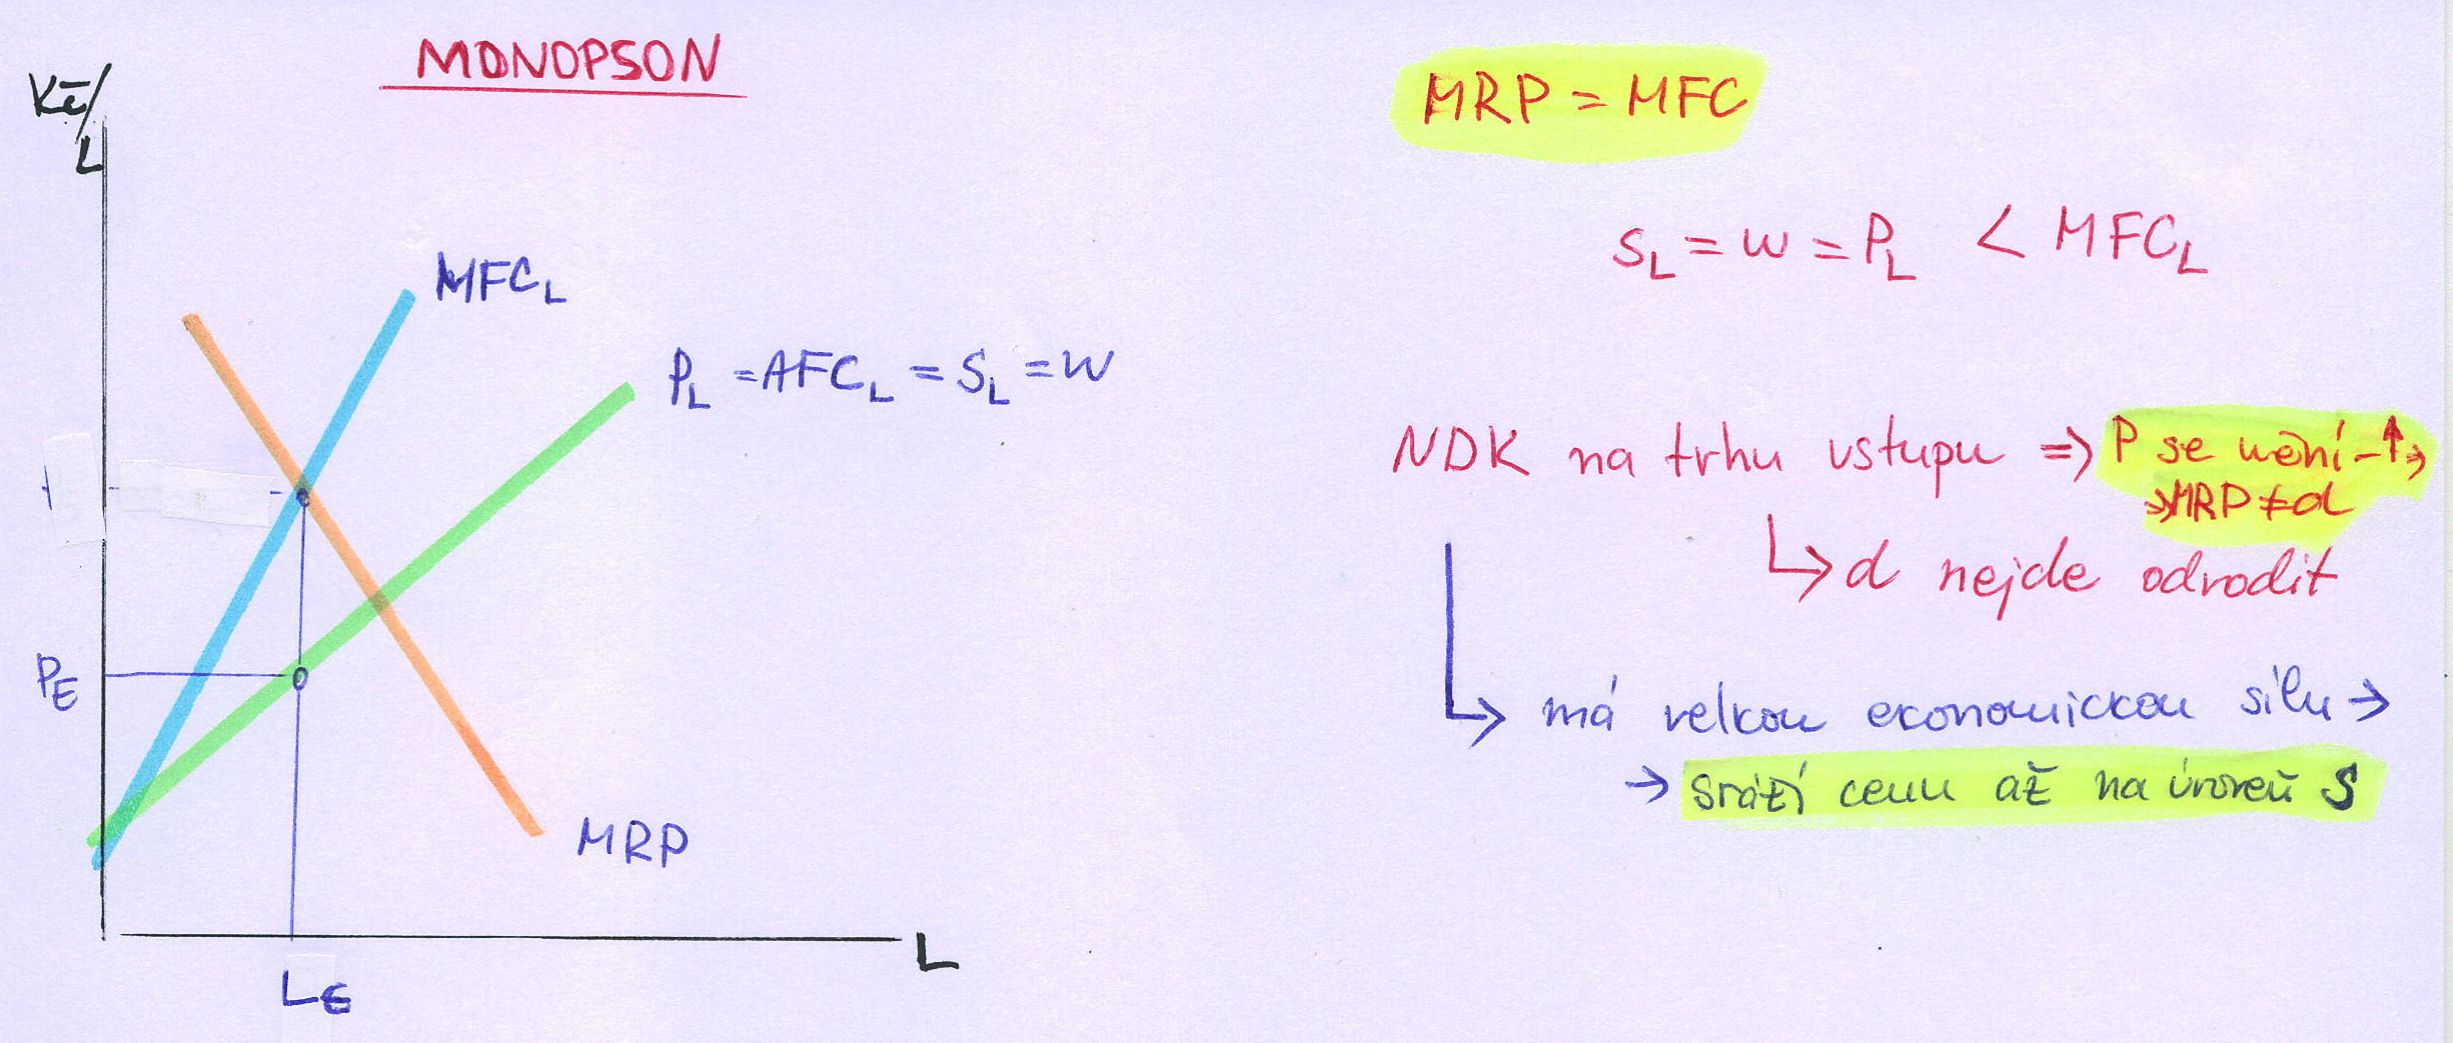 MONOPSON
Kč/
L
MFC_L
P_L = AFC_L = S_L = W
P_E
MRP
L
L_E
MRP = MFC
S_L = W = P_L < MFC_L
NDK na trhu vstupu ⇒ P se mění - ↑ ⇒
⇒ MRP ≠ d
↳ d nejde odvodit
↳ má velkou ekonomickou sílu →
→ sráží cenu až na úroveň S